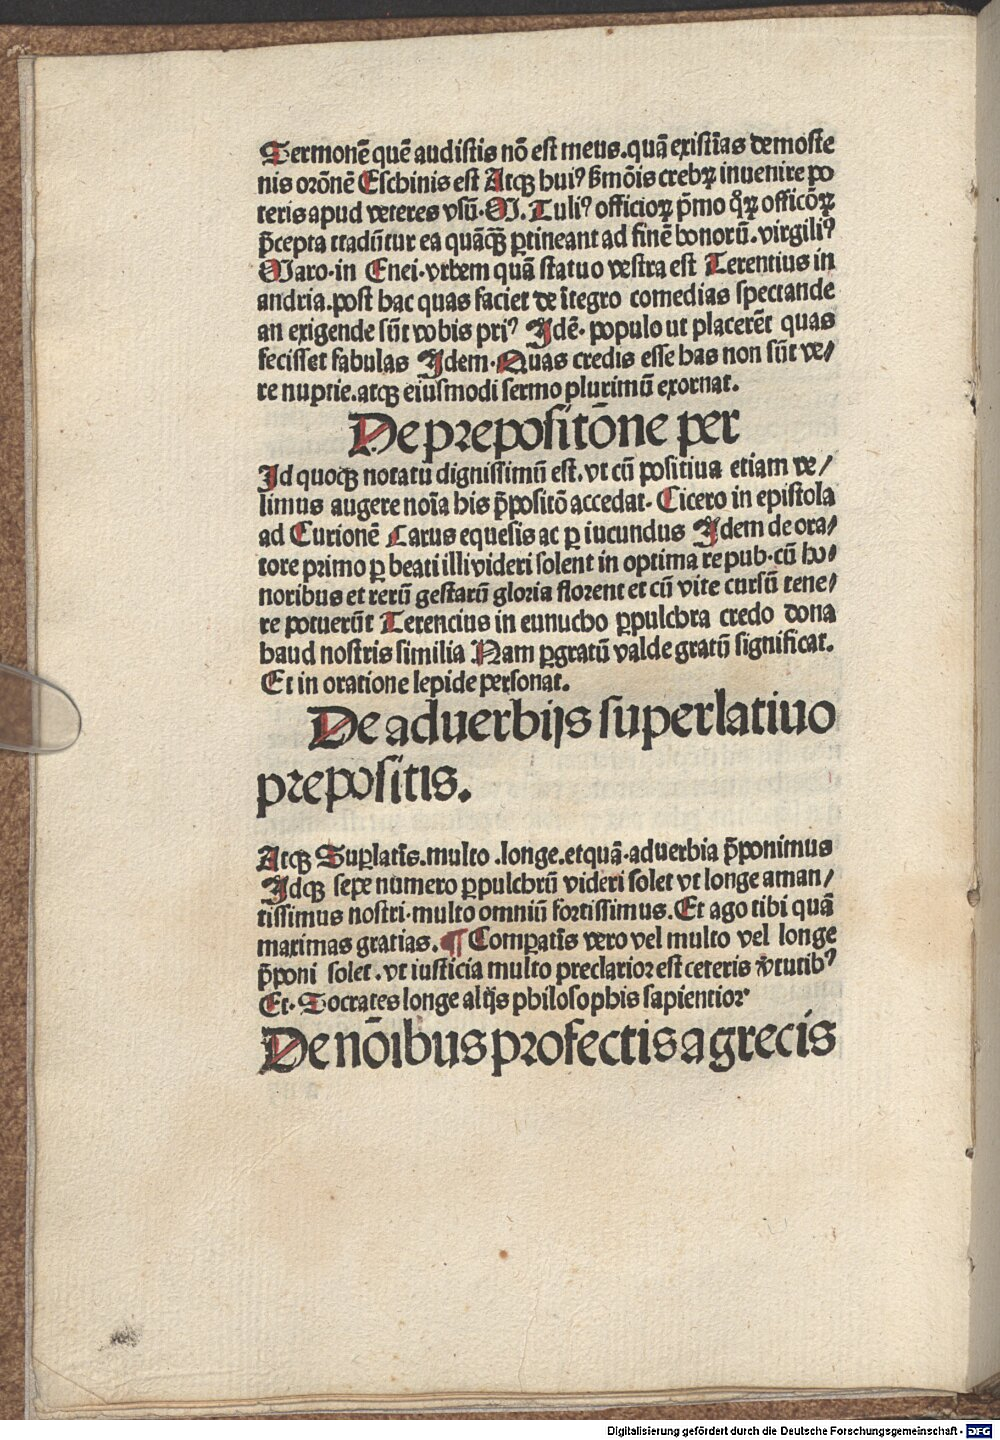 Sermonē quē audistis nō est meus.quā existīas demoste
nis orōnē Eschinis est Atqꝫ huiꝰ ẜmōis crebrꝝ inuenire po
teris apud veteres vsū. M. Tuliꝰ officioꝝ p̄mo qͦꝝꝝ officōꝝ
p̄cepta tradūtur ea quāqꝫ ꝑtineant ad finē bonorū.virgiliꝰ
Maro.in Enei.vrbem quā statuo vestra est Terentius in
andria.post hac quas faciet de ītegro comedias spectande
an exigende sūt vobis priꝰ Idē. populo ut placerēt quas
fecisset fabulas Idem. Quas credis esse has non sūt ve/
re nuptie.atqꝫ eiusmodi sermo plurimū exornat.
De prepositōne per
Id quoqꝫ notatu dignissimū est.vt cū positiua etiam ve/
limus augere noīa his p̄positō accedat. Cicero in epistola
ad Curionē Carus equesis ac ꝑ iucundus Idem de ora/
tore primo ꝑ beati illi videri solent in optima re pub.cū ho/
noribus et rerū gestarū gloria florent et cū vite cursū tene/
re potuerūt Terencius in eunucho ꝑpulchra credo dona
haud nostris similia Nam ꝑgratū valde gratū significat.
Et in oratione lepide personat.
De aduerbijs superlatiuo
prepositis.
Atqꝫ Suꝑlatīs.multo .longe.etquā.aduerbia p̄ponimus
Idqꝫ sepe numero ꝑpulchrū videri solet vt longe aman/
tissimus nostri.multo omniū fortissimus. Et ago tibi quā
maximas gratias. ¶ Comꝑatīs vero vel multo vel longe
p̄poni solet.vt iusticia multo preclarior est ceteris v̄tutibꝰ
Et. Socrates longe alijs philosophis sapientior
De nōibus profectis a grecis
Digitalisierung gefördert durch die Deutsche Forschungsgemeinschaft - DFG